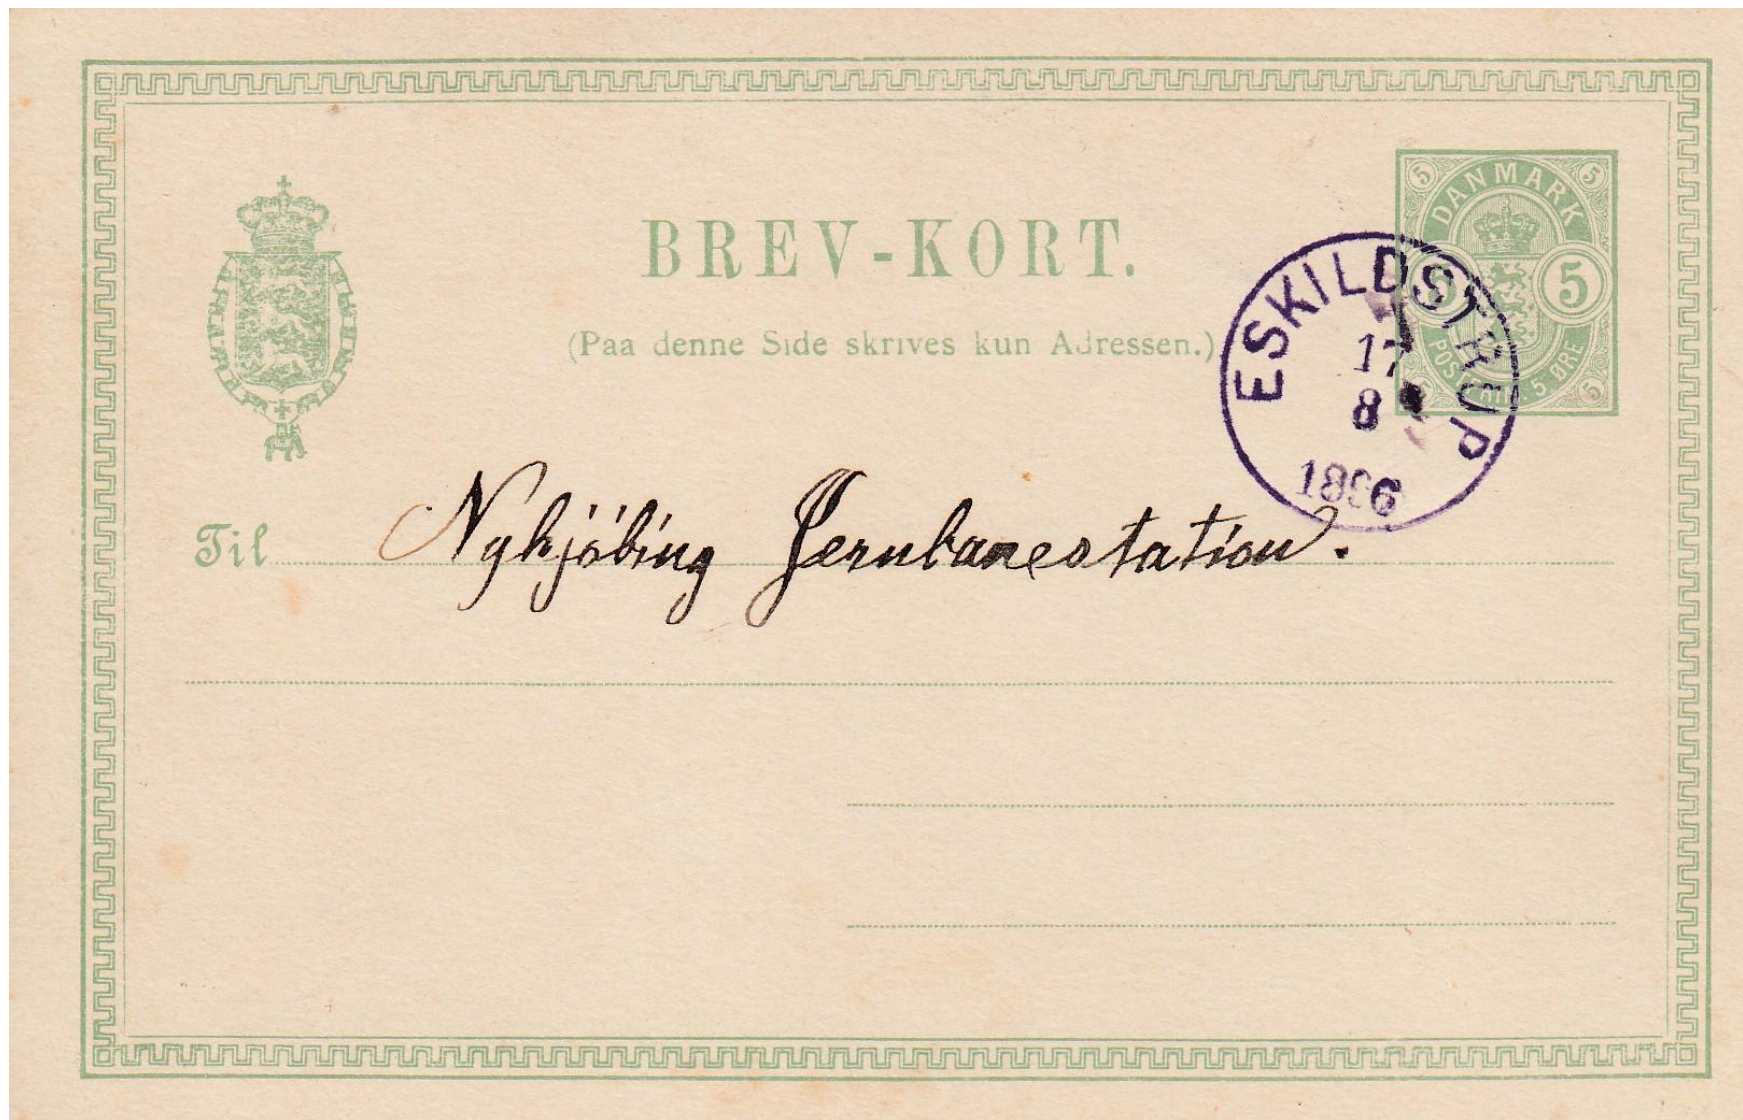 BREV-KORT.
(Paa denne Side skrives kun Adressen.)
5 5
DANMARK
5 5
POSTFRIM. 5 ØRE
5 5
ESKILDSTRUP
17
8
1896
Til Nykjöbing Jernbanestation.